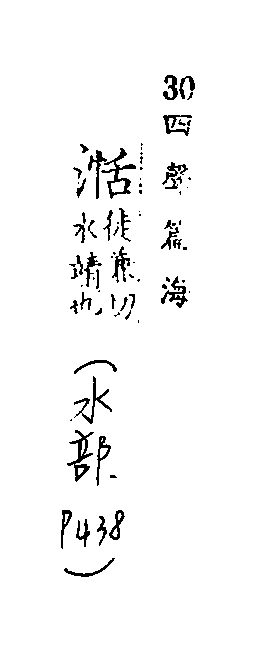 30 四聲篇海
湉 徒兼切
水靖也
（水部 P438）